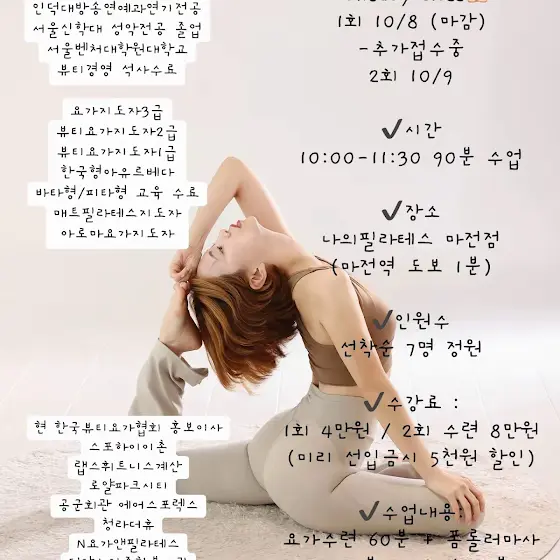 인덕대방송연예과연기전공
서울신학대 성악전공 졸업
서울벤처대학원대학교
뷰티경영 석사수료
요가지도자3급
뷰티요가지도자2급
뷰티요가지도자1급
한국형아유르베다
바타형/피타형 교육 수료
매트필라테스지도자
아로마요가지도자
현 한국뷰티요가협회 홍보이사
스포하이이촌
랩스휘트니스계산
로얄파크시티
공군회관 에어스포렉스
청라더휴
N요가앤필라테스
1회 10/8 (마감)
-추가접수중
2회 10/9
✔시간
10:00-11:30 90분 수업
✔장소
나의필라테스 마전점
(마전역 도보 1분)
✔인원수
선착순 7명 정원
✔수강료 :
1회 4만원 / 2회 수련 8만원
(미리 선입금시 5천원 할인)
✔수업내용:
요가수련 60분 + 폼롤러마사